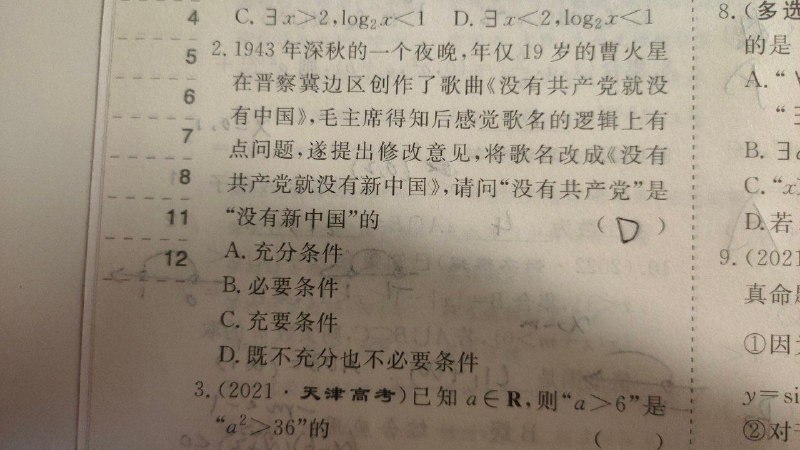 4
C. ∃x>2,log₂x<1 D. ∃x<2,log₂x<1
5
2. 1943年深秋的一个夜晚,年仅19岁的曹火星
在晋察冀边区创作了歌曲《没有共产党就没
6
有中国》,毛主席得知后感觉歌名的逻辑上有
7
点问题,遂提出修改意见,将歌名改成《没有
8
共产党就没有新中国》,请问“没有共产党”是
11
“没有新中国”的 ( D )
12
A. 充分条件
B. 必要条件
C. 充要条件
D. 既不充分也不必要条件
3. (2021·天津高考)已知a∈R,则“a>6”是
“a²>36”的 ( )
8. (多选
的是
A. “
“∃
B. ∃
C. “x
D. 若
9. (2021
真命题
①因为
y=si
②对于